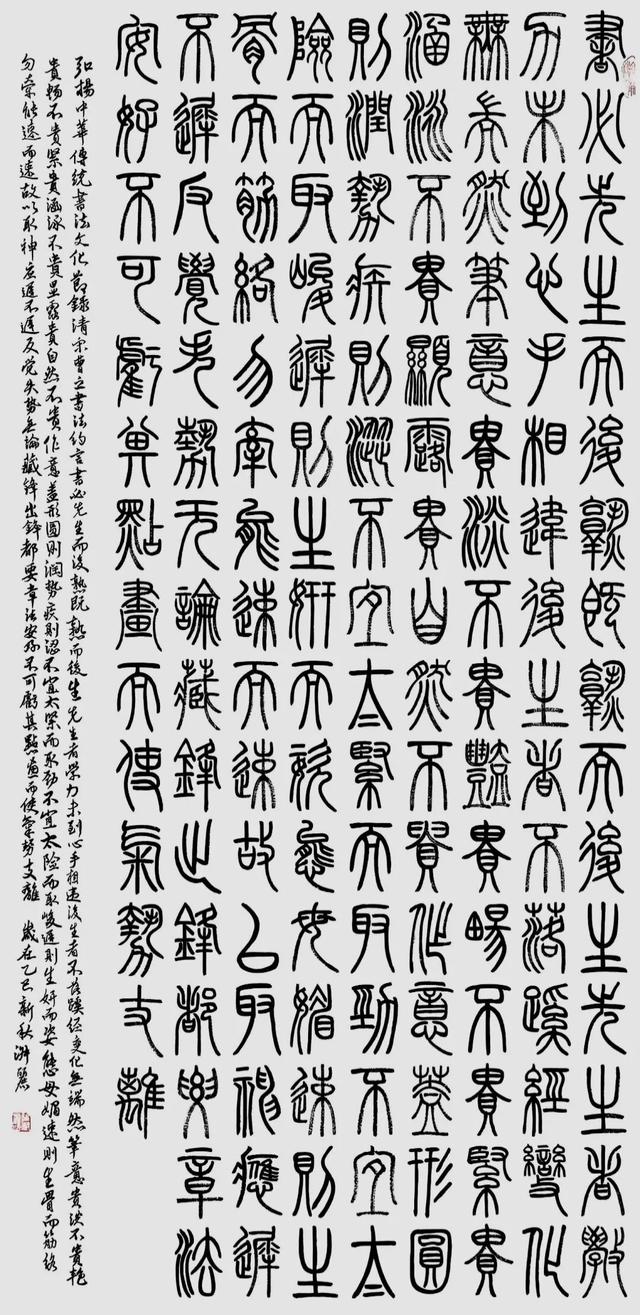 書必先生而後熟既熟而後生先生者學
力未到心手相違後生者不落蹊經變化
無端然筆意貴淡不貴豔貴暢不貴緊貴
涵泳不貴顯露貴自然不貴作意蓋形圓
則潤勢疾則澀不宜太緊而取勁不宜太
險而取峻遲則生妍而姿態毋媚速則生
骨而筋絡勿牽能速而速故以取神應遲
不遲反覺失勢无論藏鋒出鋒都要章法
安好不可虧其點畫而使氣勢支離
弘揚中華傳統书法文化節錄清宋曹之書法約言書必先生而後熟既熟而後生先生者學力未到心手相违後生者不落蹊径变化無端然筆意貴淡不貴艳
貴畅不貴緊貴涵泳不貴显露貴自然不貴作意蓋形圓則润势疾則涩不宜太緊而取勁不宜太险而取峻遲則生妍而姿態毋媚速則生骨而筋络
勿牵能速而速故以取神应遲不遲反觉失勢无論藏鋒出鋒都要章法安好不可虧其點畫而使氣勢支離 歲在乙巳新秋